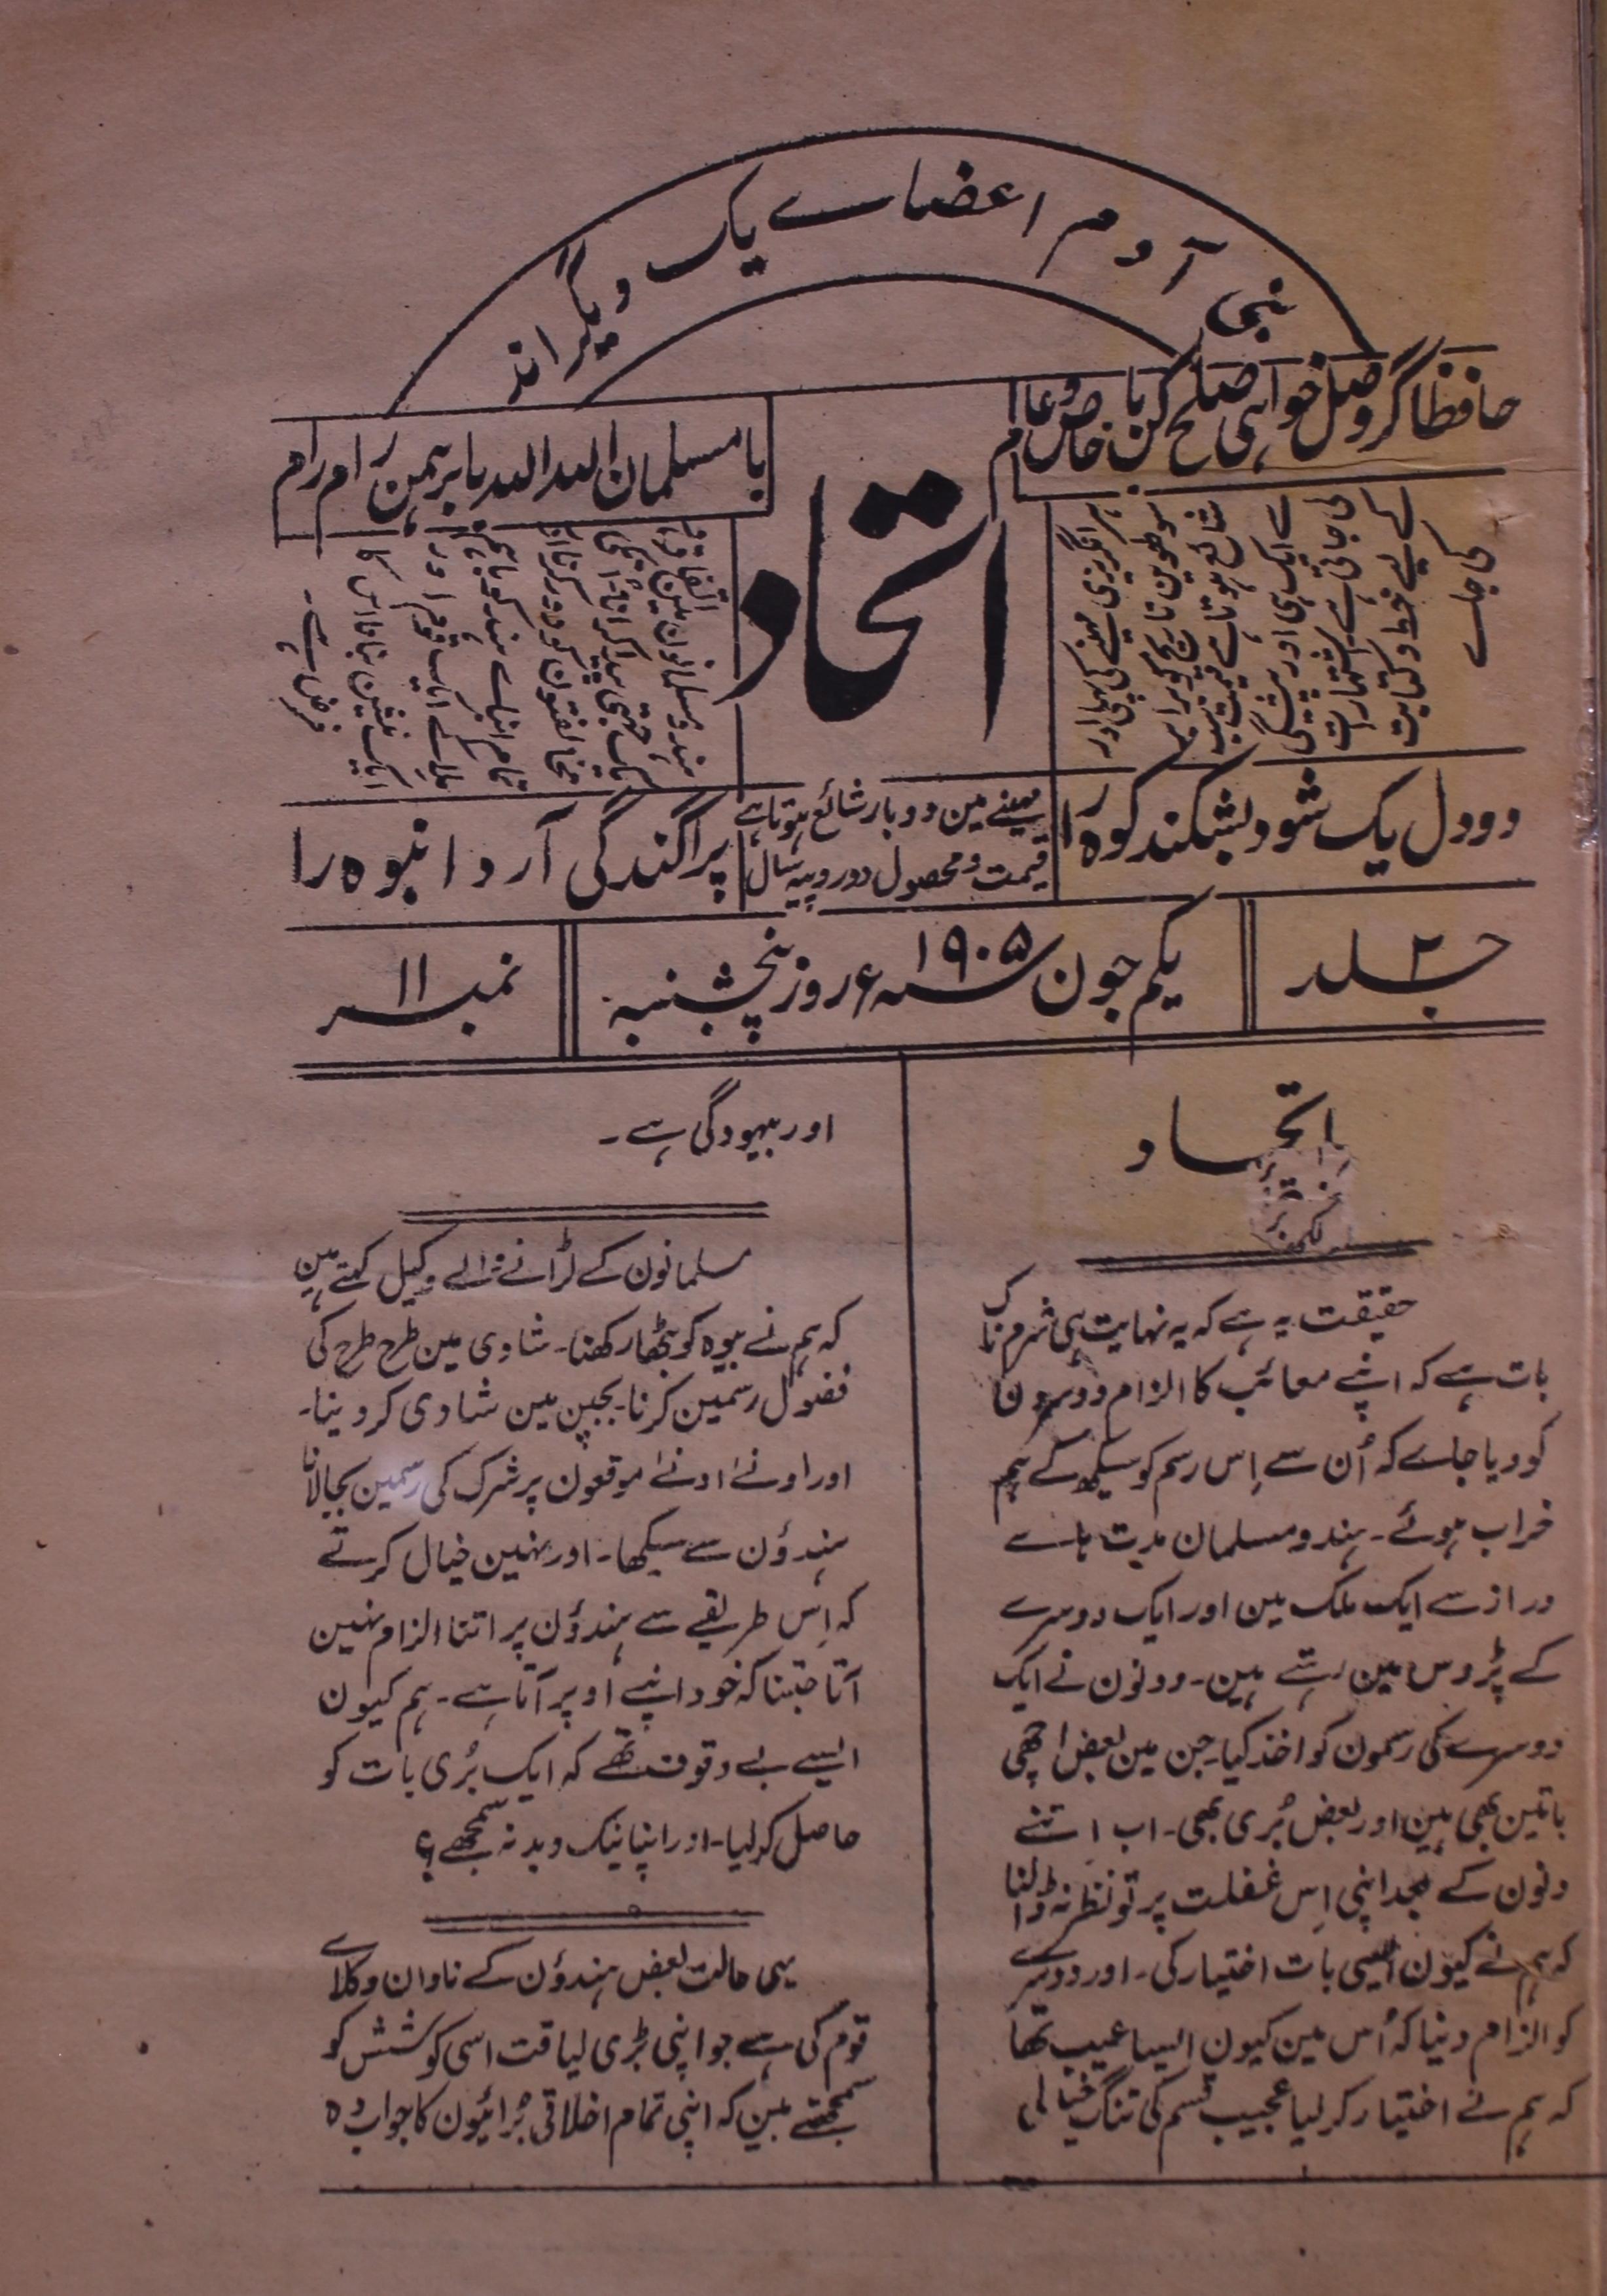 بنی آدم اعضاے یک دیگر اند
حافظا گر وصل خواہی صلح کن با خاص و عام
با مسلمان اللہ اللہ با برہمن رام رام
اتحاد
ہر انگریزی مہینے کی پہلی اور
سولھوین تاریخ کو
شائع ہوتا ہے قیمت
ے ایک ہی اور پیشگی
لی جاتی ہے اشتہارات
کے لیے خط و کتابت
کی جاے
ہندو مسلمانون مین اتفاق و
یک جہتی پیدا کرانا
مخالفتون کو دور کرنا اور
تمام ابناے ہند کو باہم
ملا کے ایک قوم اور
ایک نیشن بنانا اس کا
فرض ہے۔
دو دل یک شود بشکند کوہ را
مہینے مین دو بار شائع ہوتا ہے
قیمت و محصول دو روپیہ سال
پراگندگی آرد انبوہ را
جلد ۲
یکم جون سنہ ۱۹۰۵ء روز پنجشنبہ
نمبر ۱۱
اتحاد
حقیقت یہ ہے کہ یہ نہایت ہی شرم ناک
بات ہے کہ اپنے معائب کا الزام دوسرون
کو دیا جاے کہ اُن سے اِس رسم کو سیکھ کے ہم
خراب ہوئے۔ ہندو مسلمان مدت ہاے
دراز سے ایک ملک مین اور ایک دوسرے
کے پڑوس مین رہتے ہین۔ دونون نے ایک
دوسرے کی رسمون کو اخذ کیا۔ جن مین بعض اچھی
باتین بھی ہین اور بعض بُری بھی۔ اب اِتنے
دنون کے بعد اپنی اِس غفلت پر تو نظر نہ ڈالنا
کہ ہم نے کیون ایسی بات اختیار کی۔ اور دوسرے
کو الزام دینا کہ اُس مین کیون ایسا عیب تھا
کہ ہم نے اختیار کر لیا عجیب قسم کی تنگ خیالی
اور بیہودگی ہے۔
مسلمانون کے لڑانے والے وکیل کہتے ہین
کہ ہم نے بیوہ کو بٹھا رکھنا۔ شادی مین طرح طرح کی
فضول رسمین کرنا۔ بچپن مین شادی کر دینا۔
اور ادنےٰ ادنےٰ موقعون پر شرک کی رسمین بجا لانا
ہندوُن سے سیکھا۔ اور نہین خیال کرتے
کہ اِس طریقے سے ہندوُن پر اتنا الزام نہین
آتا جتنا کہ خود اپنے اوپر آتا ہے۔ ہم کیون
ایسے بے وقوف تھے کہ ایک بُری بات کو
حاصل کر لیا۔ اور اپنا نیک و بد نہ سمجھے؟
یہی حالت بعض ہندوُن کے نادان وکلاے
قوم کی ہے جو اپنی بڑی لیاقت اسی کوشش کو
سمجھتے ہین کہ اپنی تمام اخلاقی بُرائیون کا جواب دہ